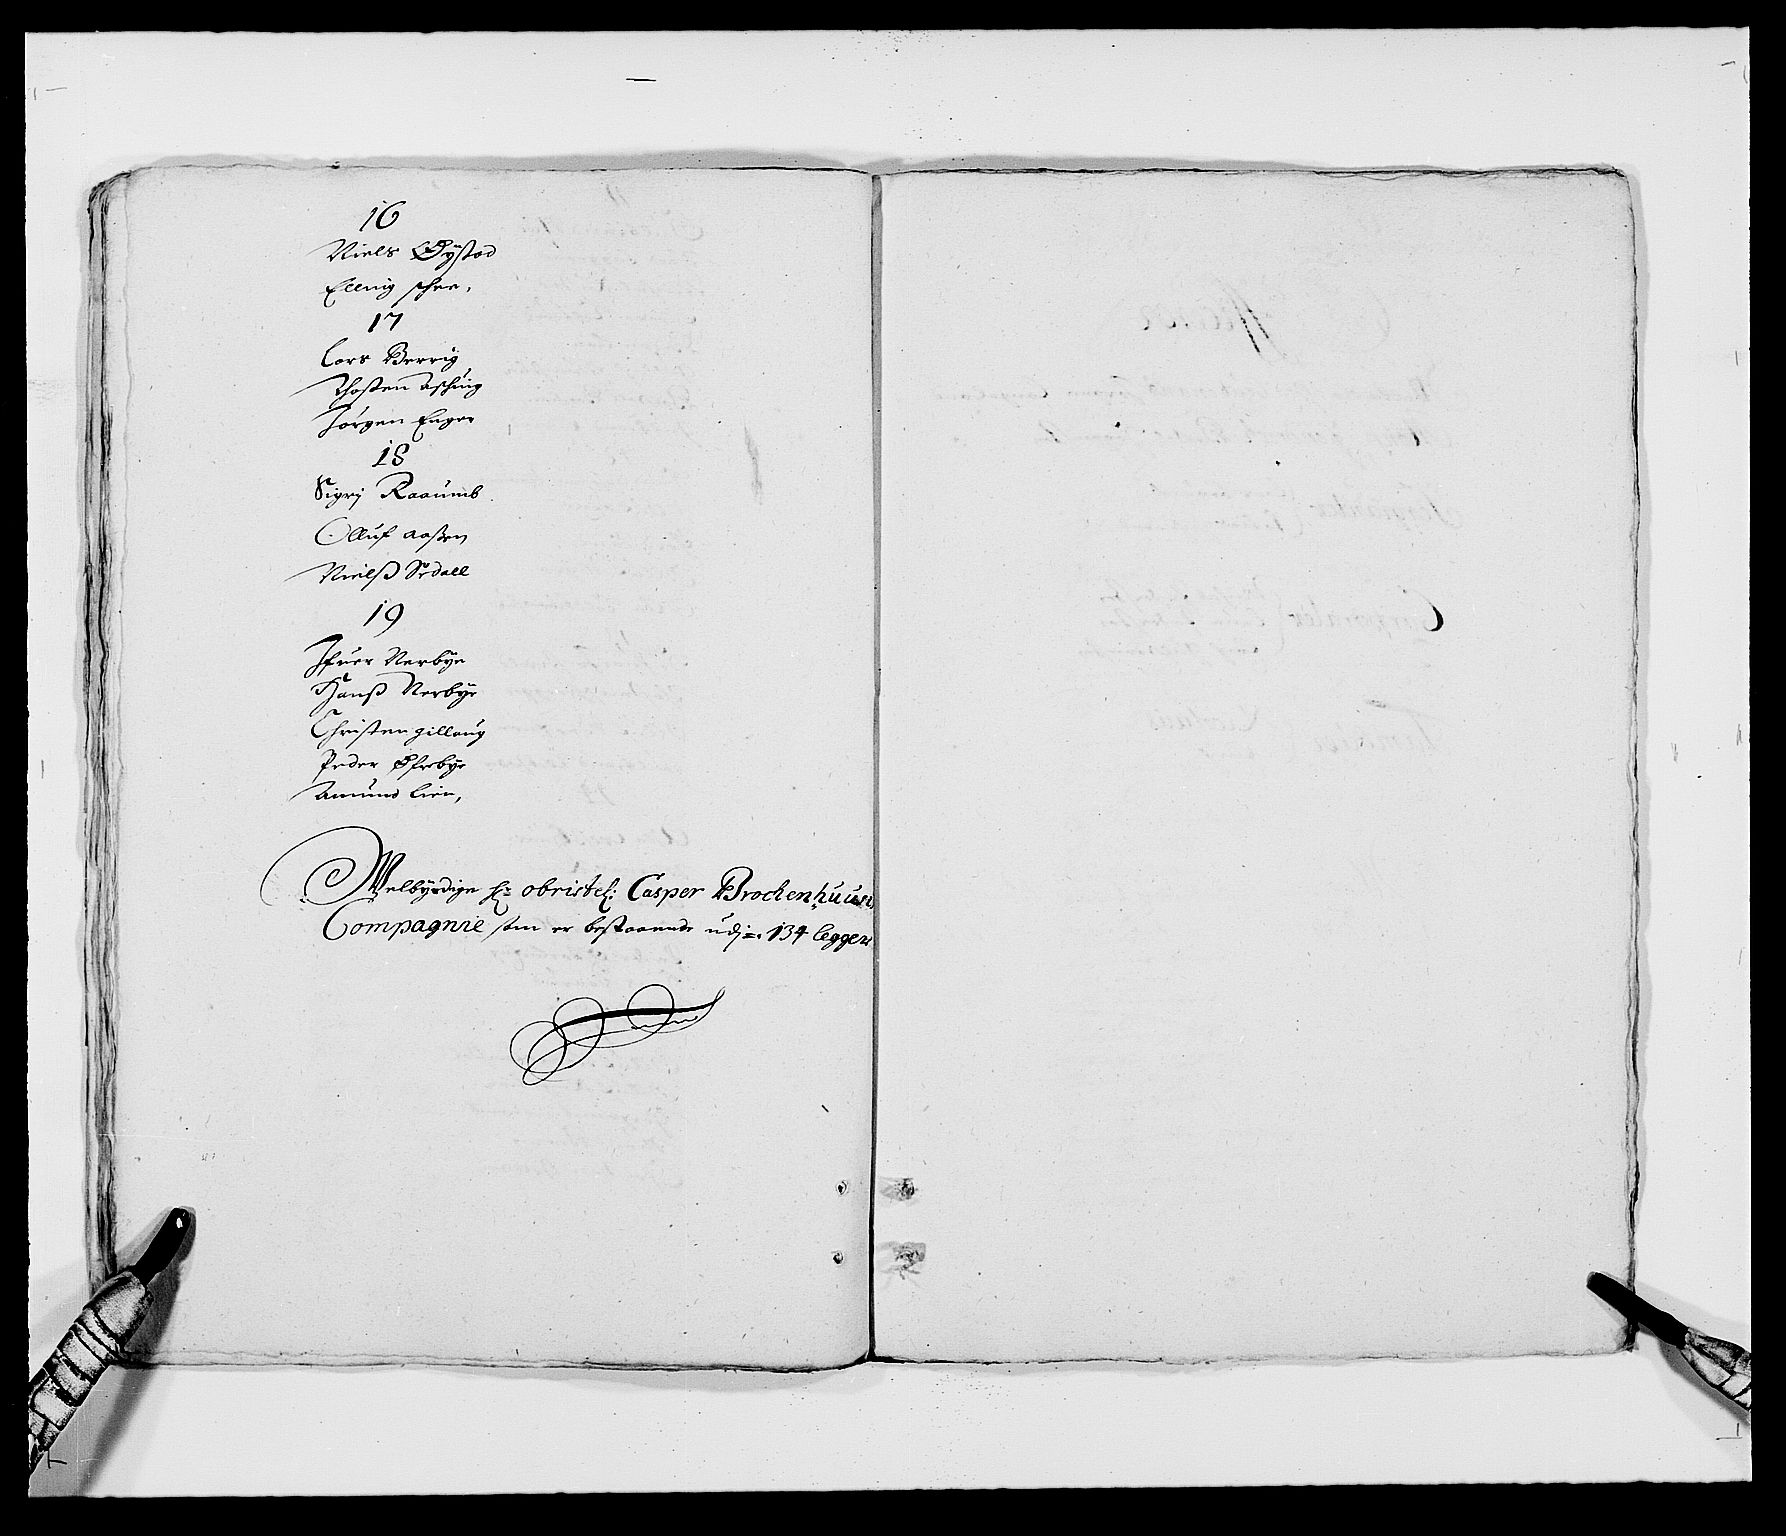 16
Niels Øÿstad
Elling schee,
17
Lars Berrig
Thosten Aschuig
Jørgen Enger
18
Sigrj Raaumb
Olluf aasen
Nielß Sedall
19
Jfuer Nerbÿe
Hanß Nerbÿe
Christen gillaug
Peder Øfrebÿe
Amund Lien,
Welbÿrdige Hr: obristel: Casper Brockenhuus
Compagnie som er bestaaende udj 134 legger